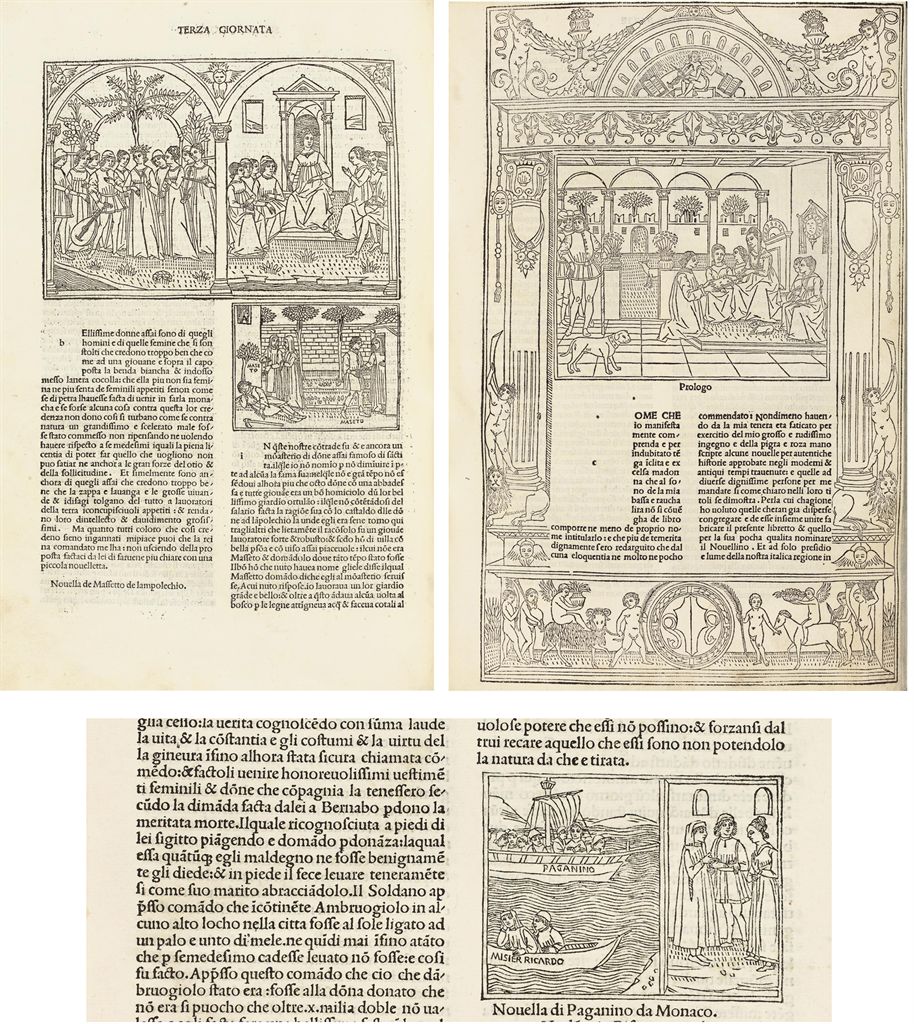 TERZA GIORNATA
b
Ellissime donne assai sono di quegli
homini e di quelle femine che si son
stolti che credono troppo ben che co
me ad una giouane e sopra il capo
posta la benda biancha & indosso
messo lanera cocolla: che ella piu non sia femi
na ne piu senta de feminili appetiti senon come
se di petra lhauesse facta di uenir in farla mona
cha e se forse alcuna cosa contra questa lor cre
denza non dono cosi si turbano come se contra
natura un grandissimo e scelerato male fos
se stato commesso non ripensando ne uolendo
hauere rispecto a se medesimi iquali la piena li
centia di poter far quello che uogliono non
puo satiar ne anchor a le gran forze del otio &
della sollicitudine. Et simelmente sono an
chora di quegli assai che credono troppo be
ne che la zappa e la uanga e le grosse uiuan
de & idisagi tolgano del tutto a lauoratori
della terra iconcupisciuoli appetiti: & renda
no loro dintellecto & dauidimento grossi
simi. Ma quatto tutti coloro che cosi cre
deno sieno ingannati mipiace puoi che la rei
na comandato me lha: non uscendo della pro
posta factaci da lei di faruene piu chiare con una
piccola nouelletta.
Nouella de Massetto de lampolechio.
MASE
TO
MASETO
i
N q̃ste nostre cõtrade fu & e ancora un
mõasterio di dõne assai famoso di sacti
ta. ilq̃le io nõ nomio p nõ diminuire i p
te ad alcũa la fama sua: nelq̃le nõ e grã tẽpo nõ es
sẽdoui alhora piu che octo dõne cõ una abbades
sa e tutte giouẽ era un bõ homiciolo dũ lor bel
lissimo giardino ortulão: ilq̃le nõ cõtẽtãdosi del
salario facta la ragiõe sua cõ lo castaldo dlle dõ
ne ad lãpolechio la unde egli era sene torno qui
tragli altri che lietamẽte il racolsõ: fu un giouẽ
lauoratore forte & robusto: & sedo hõ di uilla cõ
bella p̃sõa e cõ uiso assai piaceuole: il cui nõe era
Massetto & domãdolo dõne tãto tẽpo stato fosse
Ilbõ hõ che nuto hauea nome gliele disse ilqual
Massetto domãdo diche egli al mõasterio seruis
se. A cui nuto rispose. io lauoraua un lor giardio
grãde e bello: & oltre a q̃sto ãdaua alcũa uolta al
bosco p le legne attigneua acq̃ & faceua cotali al
Prologo
c
OME CHE
io manifesta
mente com-
prenda e per
indubitato tẽ
ga iclita e ex
celsa madon
na che al so
no de la mia
bassa e raucha
lira nõ si cõue
gha de libro
comporre ne meno de proprio no-
me intitularlo: e che piu de temerita
dignamẽte sero redarguito che dal
cuna eloquentia ne molto ne pocho
commendato: Nondimeno hauen-
do da la mia tenera eta faticato per
exercitio del mio grosso e rudissimo
ingegno e della pigra e roza mano
scripte alcune nouelle per autentiche
historie approbate negli moderni &
antiqui tempi trauenute: e quelle ad
diuerse dignissime persone per me
mandate si como chiaro nelli loro ti
toli se dimostra. Perla cui chagione
ho uoluto quelle che eran gia disperse
congregare e de esse insieme unite fa
bricare il presente libretto & quello
per la sua pocha qualita nominare
il Nouellino. Et ad solo presidio
e lume della nostra italica regione in
glia cello: la uerita cognoscẽdo con sũma laude
la uita & la cõstantia e gli costumi & la uirtu del
la gineura ĩsino alhora stata sicura chiamata cõ-
mẽdo: & factoli uenire honoreuolissimi uestimẽ
ti feminili & dõne che cõpagnia la tenessero se-
cũdo la dimãda facta dalei a Bernabo pdono la
meritata morte. Ilquale ricognosciuta a piedi di
lei sigitto piãgendo e domãdo pdonãza: laqual
essa quãtũq; egli maldegno ne fosse benignamẽ
te gli diede: & in piede il fece leuare teneramẽte
si come suo marito abracciãdolo. Il Soldano ap
p̃sso comãdo che ĩcõtinẽte Ambruogiolo in al-
cuno alto locho nella citta fosse al sole ligato ad
un palo e unto di mele. ne quĩdi mai ĩsino atãto
che p semedesimo cadesse leuato nõ fosse: e cosi
fu facto. App̃sso questo comãdo che cio che dã-
bruogiolo stato era: fosse alla dõna donato che
nõ era si puocho che oltre. x. milia doble nõ ua-
uolose potere che essi nõ possino: & forzansi dal
trui recare aquello che essi sono non potendolo
la natura da che e tirata.
PAGANINO
MISIER RICARDO
Nouella di Paganino da Monaco.